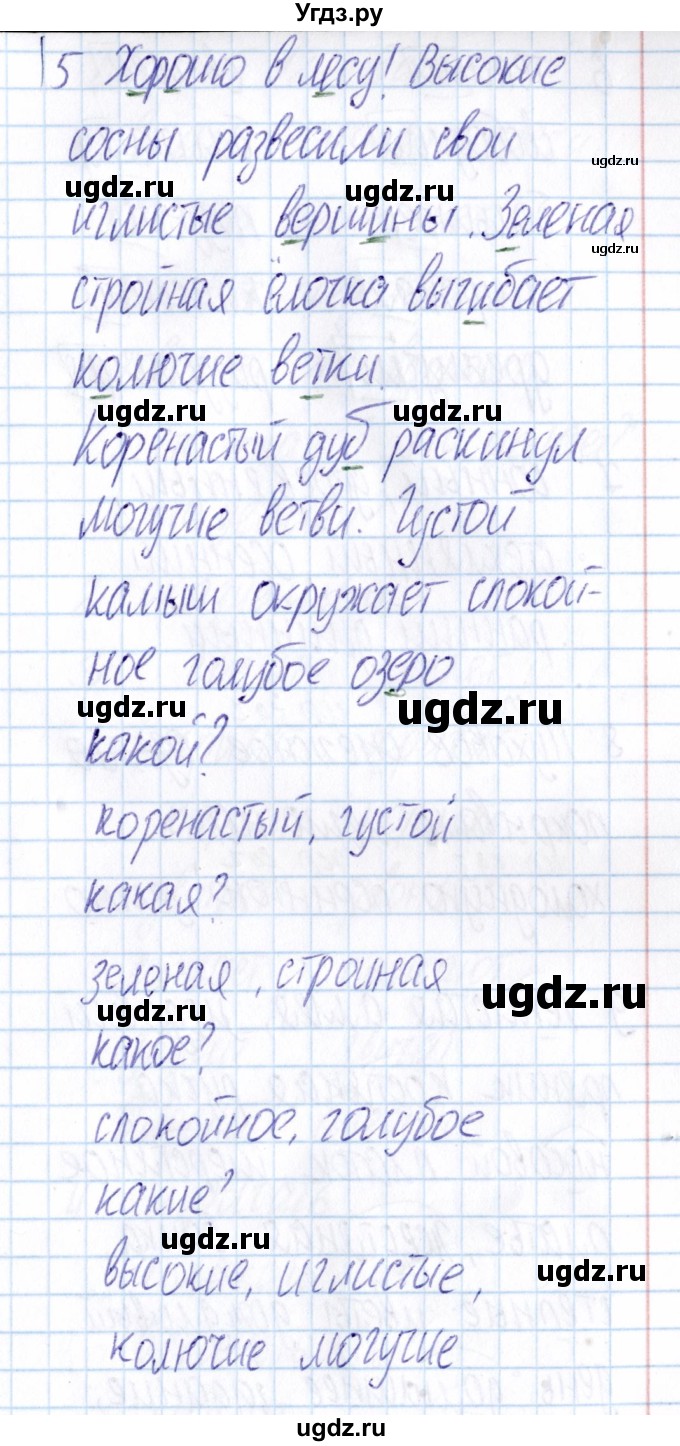 Угдз.ру
5 Хорошо в лесу! Высокие
сосны развесили свои
ugdz.ru
ugdz.ru ugdz.ru
иглистые вершины. Зеленая
ugdz.ru
стройная ёлочка выгибает
колючие ветки.
ugdz.ru ugdz.ru
Коренастый дуб раскинул
могучие ветви. Густой
камыш окружает спокой-
ное голубое озеро
ugdz.ru ugdz.ru
какой?
коренастый, густой
какая?
зеленая, стройная
ugdz.ru ugdz.ru
какое?
спокойное, голубое
какие?
ugdz.ru
высокие, иглистые,
ugdz.ru
колючие могучие
ugdz.ru